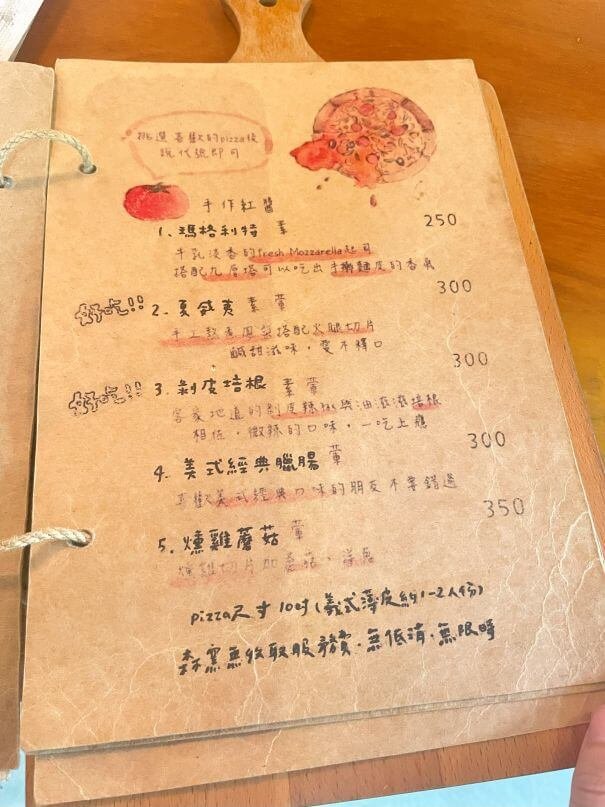 挑選喜歡的pizza後
說代號即可
手作紅醬
1、瑪格利特 素 250
牛乳淡香的fresh Mozzarella起司
搭配九層塔可以吃出手擀麵皮的香氣
好吃!! 2. 夏威夷 素 葷 300
手工熬煮鳳梨搭配火腿切片
鹹甜滋味，愛不釋口
好吃!! 3. 剝皮培根 素 葷 300
客家地道的剝皮辣椒與油滋滋培根
相佐，微辣的口味，一吃上癮
4. 美式經典臘腸 葷 300
喜歡美式經典口味的朋友不要錯過
5. 燻雞蘑菇 葷 350
燻雞切片加蘑菇、洋蔥
pizza尺寸10吋(義式薄皮約1-2人份)
森窯無收取服務費.無低消.無限時